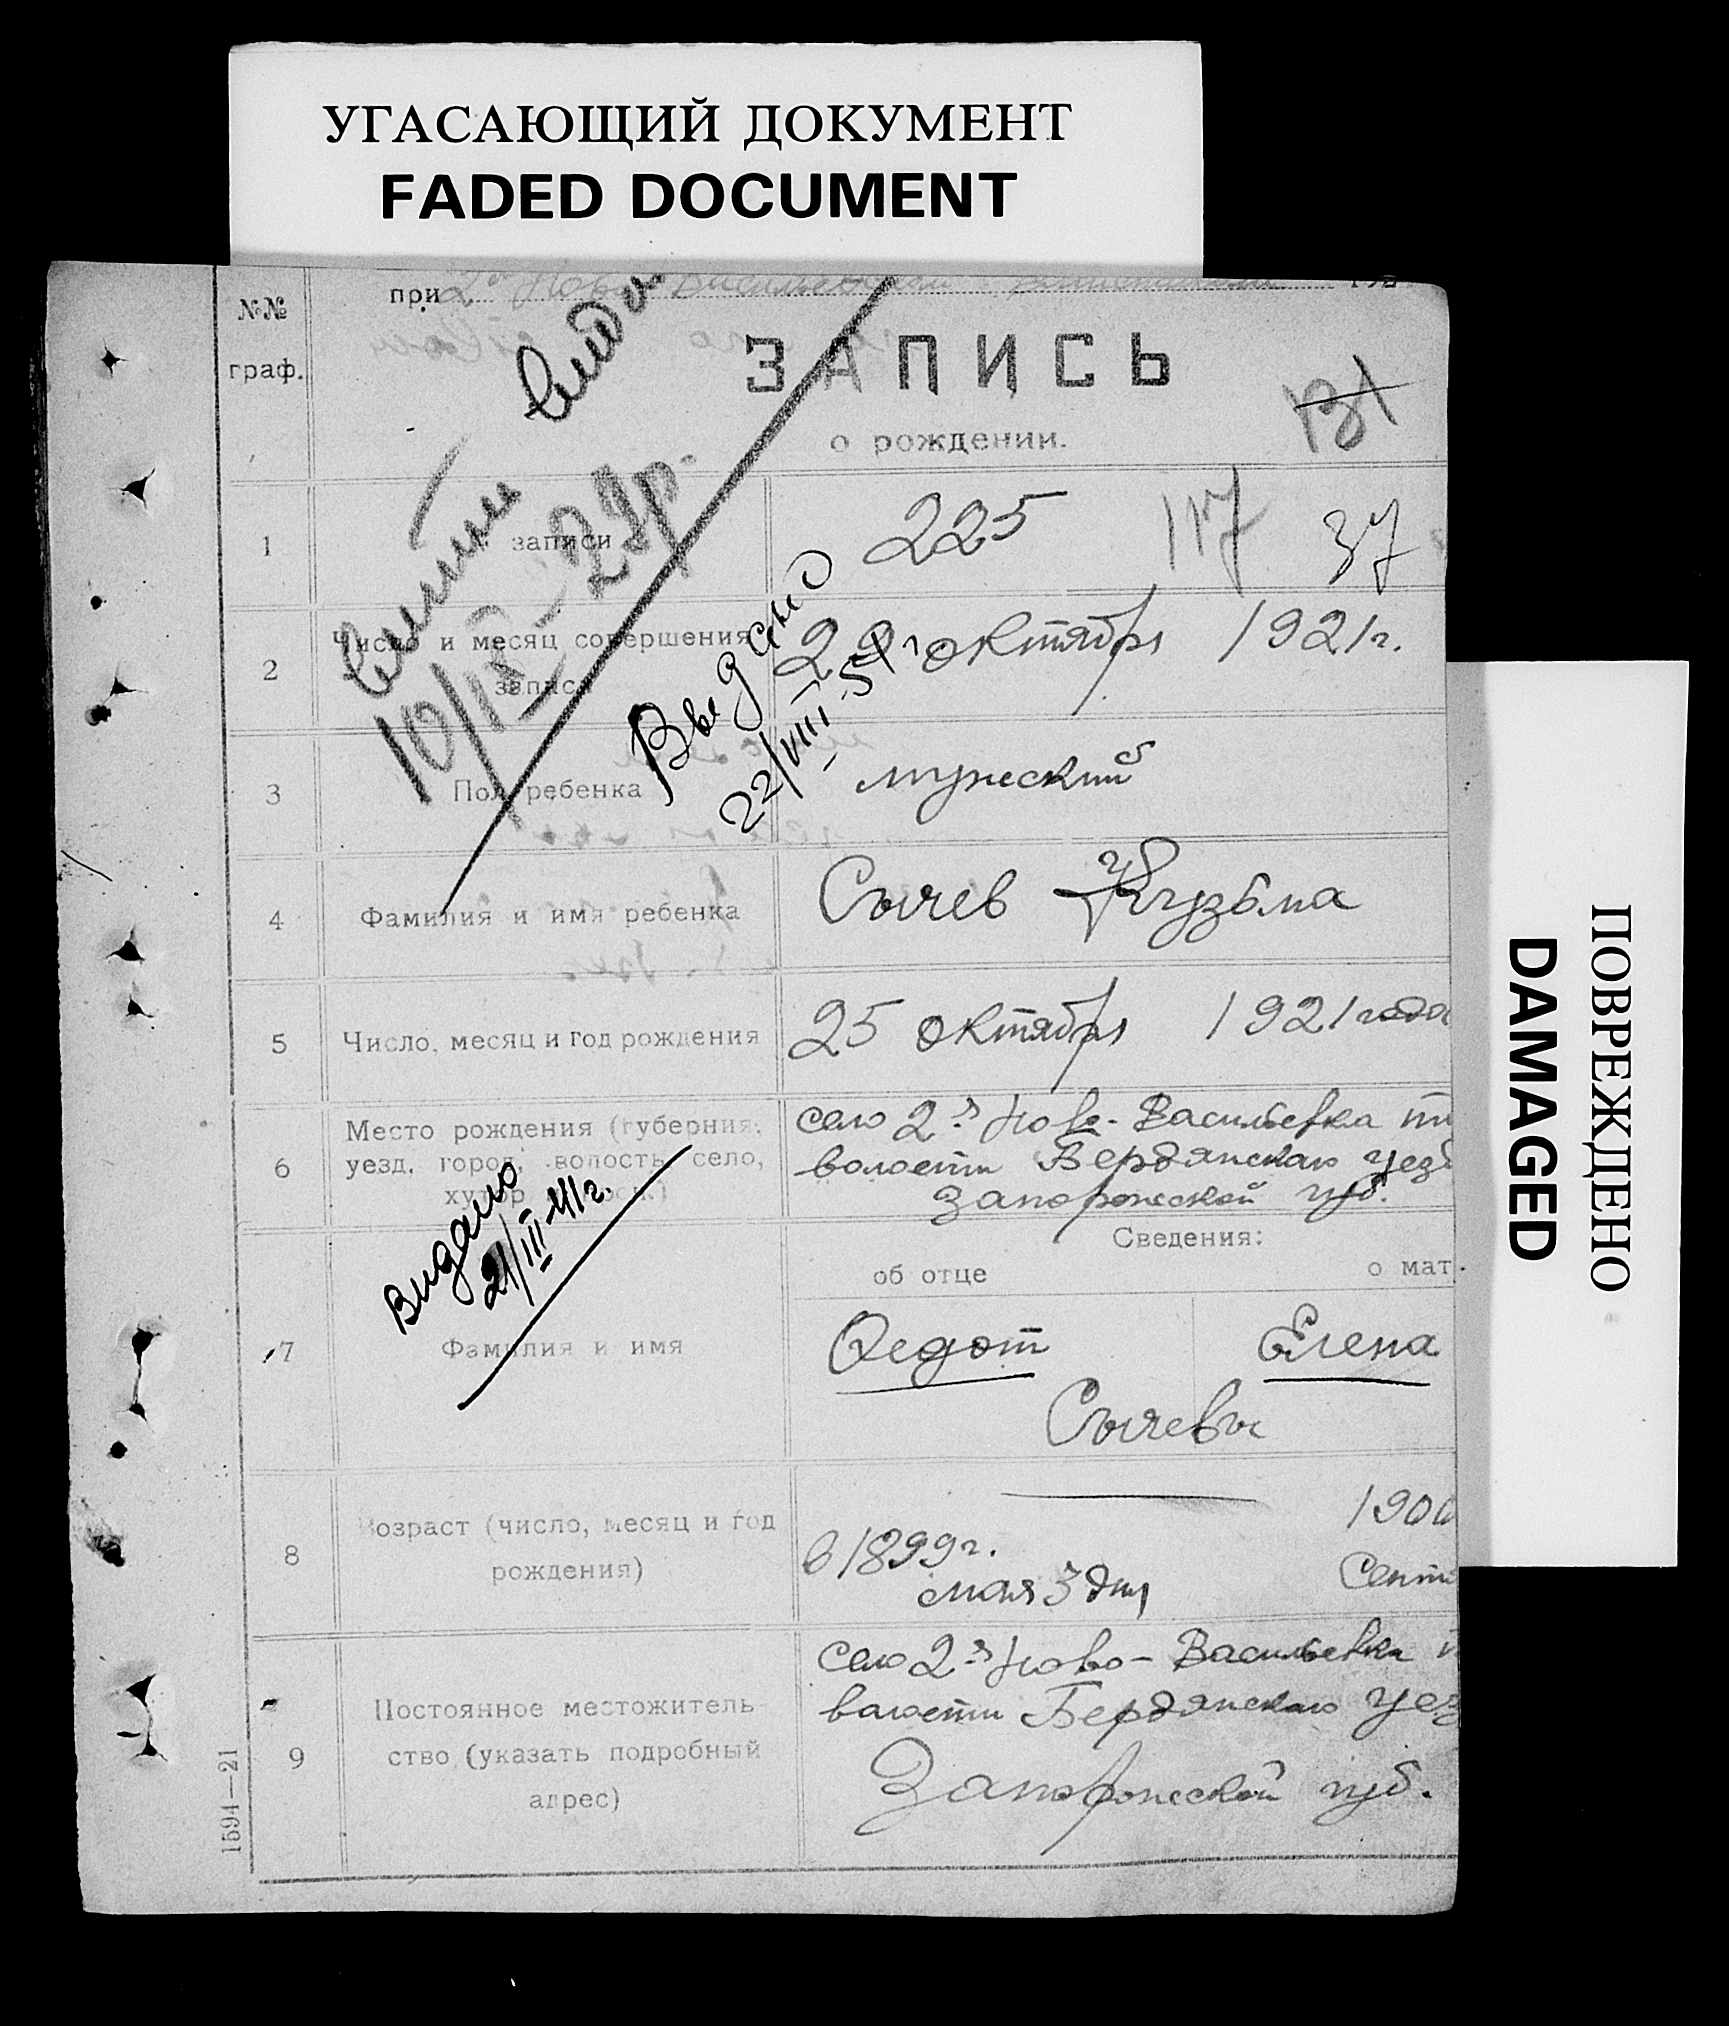 УГАСАЮЩИЙ ДОКУМЕНТ
FADED DOCUMENT
ПОВРЕЖДЕНО
DAMAGED
№№
граф.
при
ЗАПИСЬ
о рождении.
131
1
записи
225
117
37
2
Число и месяц совершения
записи
октября 1921 г.
3
Пол ребенка
мужеский
22/VIII 51
4
Фамилия и имя ребенка
Сычев Кузьма
5
Число, месяц и год рождения
25 октября 1921 года
6
Место рождения (губерния,
уезд, город, волость, село,
хутор
село 2-я Ново-Васильевка
волости Бердянскаго уезд
Запорожской губ.
Видано
21/III-41 г.
Сведения:
об отце
о мат
7
Фамилия и имя
Федот
Елена
Сычевы
8
Возраст (число, месяц и год
рождения)
в 1899 г.
мая 3 дня
190
Сент
9
Постоянное местожитель-
ство (указать подробный
адрес)
село 2-я Ново-Васильевка
волости Бердянскаго уез
Запорожской губ.
1594—21